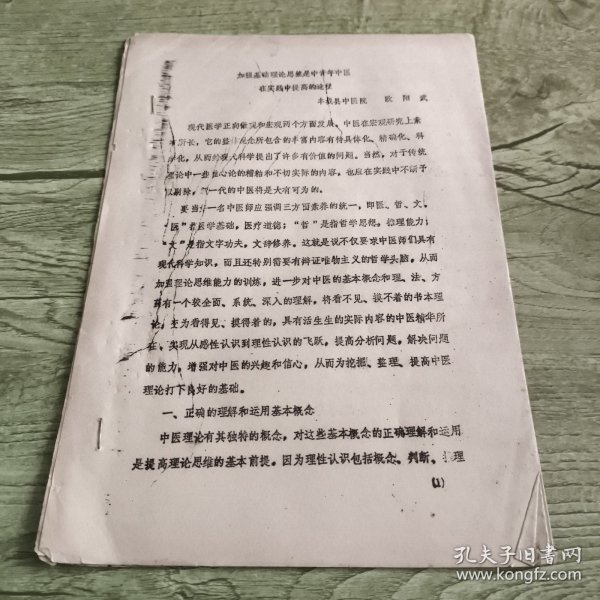 加强基础理论思维是中青年中医
在实践中提高的途径
丰城县中医院 欧阳武
现代医学正向微观和宏观两个方面发展，中医在宏观研究上素
有所长，它的整体观念所包含的丰富内容有待具体化、精确化、科
学化，从而给现代科学提出了许多有价值的问题。当然，对于传统
理论中一些唯心论的糟粕和不切实际的内容，也应在实践中不断予
以剔除，新一代的中医将是大有可为的。
要当好一名中医师应强调三方面素养的统一，即医、哲、文。
“医”指医学基础，医疗道德；“哲”是指哲学思想，推理能力；
“文”是指文字功夫，文辞修养。这就是说不仅要求中医师们具有
现代科学知识，而且还特别需要有辩证唯物主义的哲学头脑，从而
加强理论思维能力的训练，进一步对中医的基本概念和理、法、方
药有一个较全面、系统、深入的理解，将看不见、摸不着的书本理
论，变为看得见、摸得着的，具有活生生的实际内容的中医精华所
在，实现从感性认识到理性认识的飞跃，提高分析问题，解决问题
的能力，增强对中医的兴趣和信心，从而为挖掘、整理、提高中医
理论打下良好的基础。
一、正确的理解和运用基本概念
中医理论有其独特的概念，对这些基本概念的正确理解和运用
是提高理论思维的基本前提。因为理性认识包括概念、判断、推理
(1)
孔夫子旧书网
www.kongfz.com